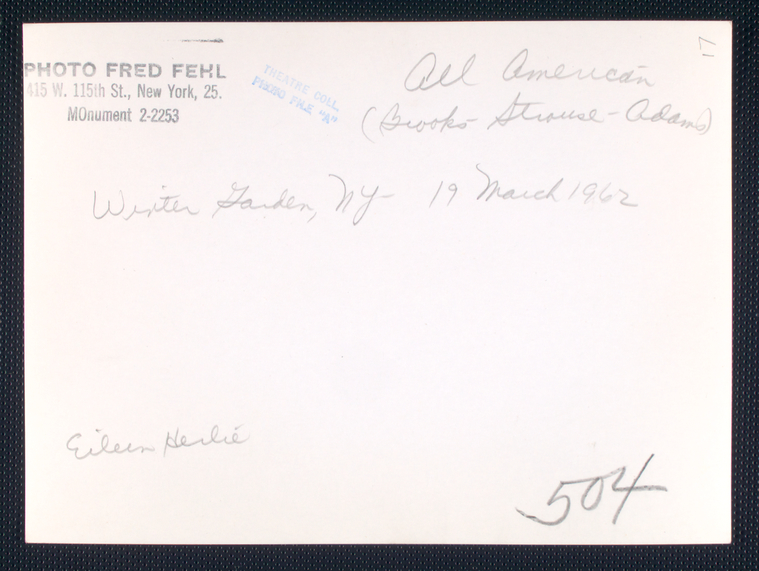 PHOTO FRED FEHL
415 W. 115th St., New York, 25.
MOnument 2-2253
THEATRE COLL.
PHOTO FILE "A"
17
All American
(Brooks-Strouse-Adams)
Winter Garden, NY- 19 March 1962
Eileen Herlie
504